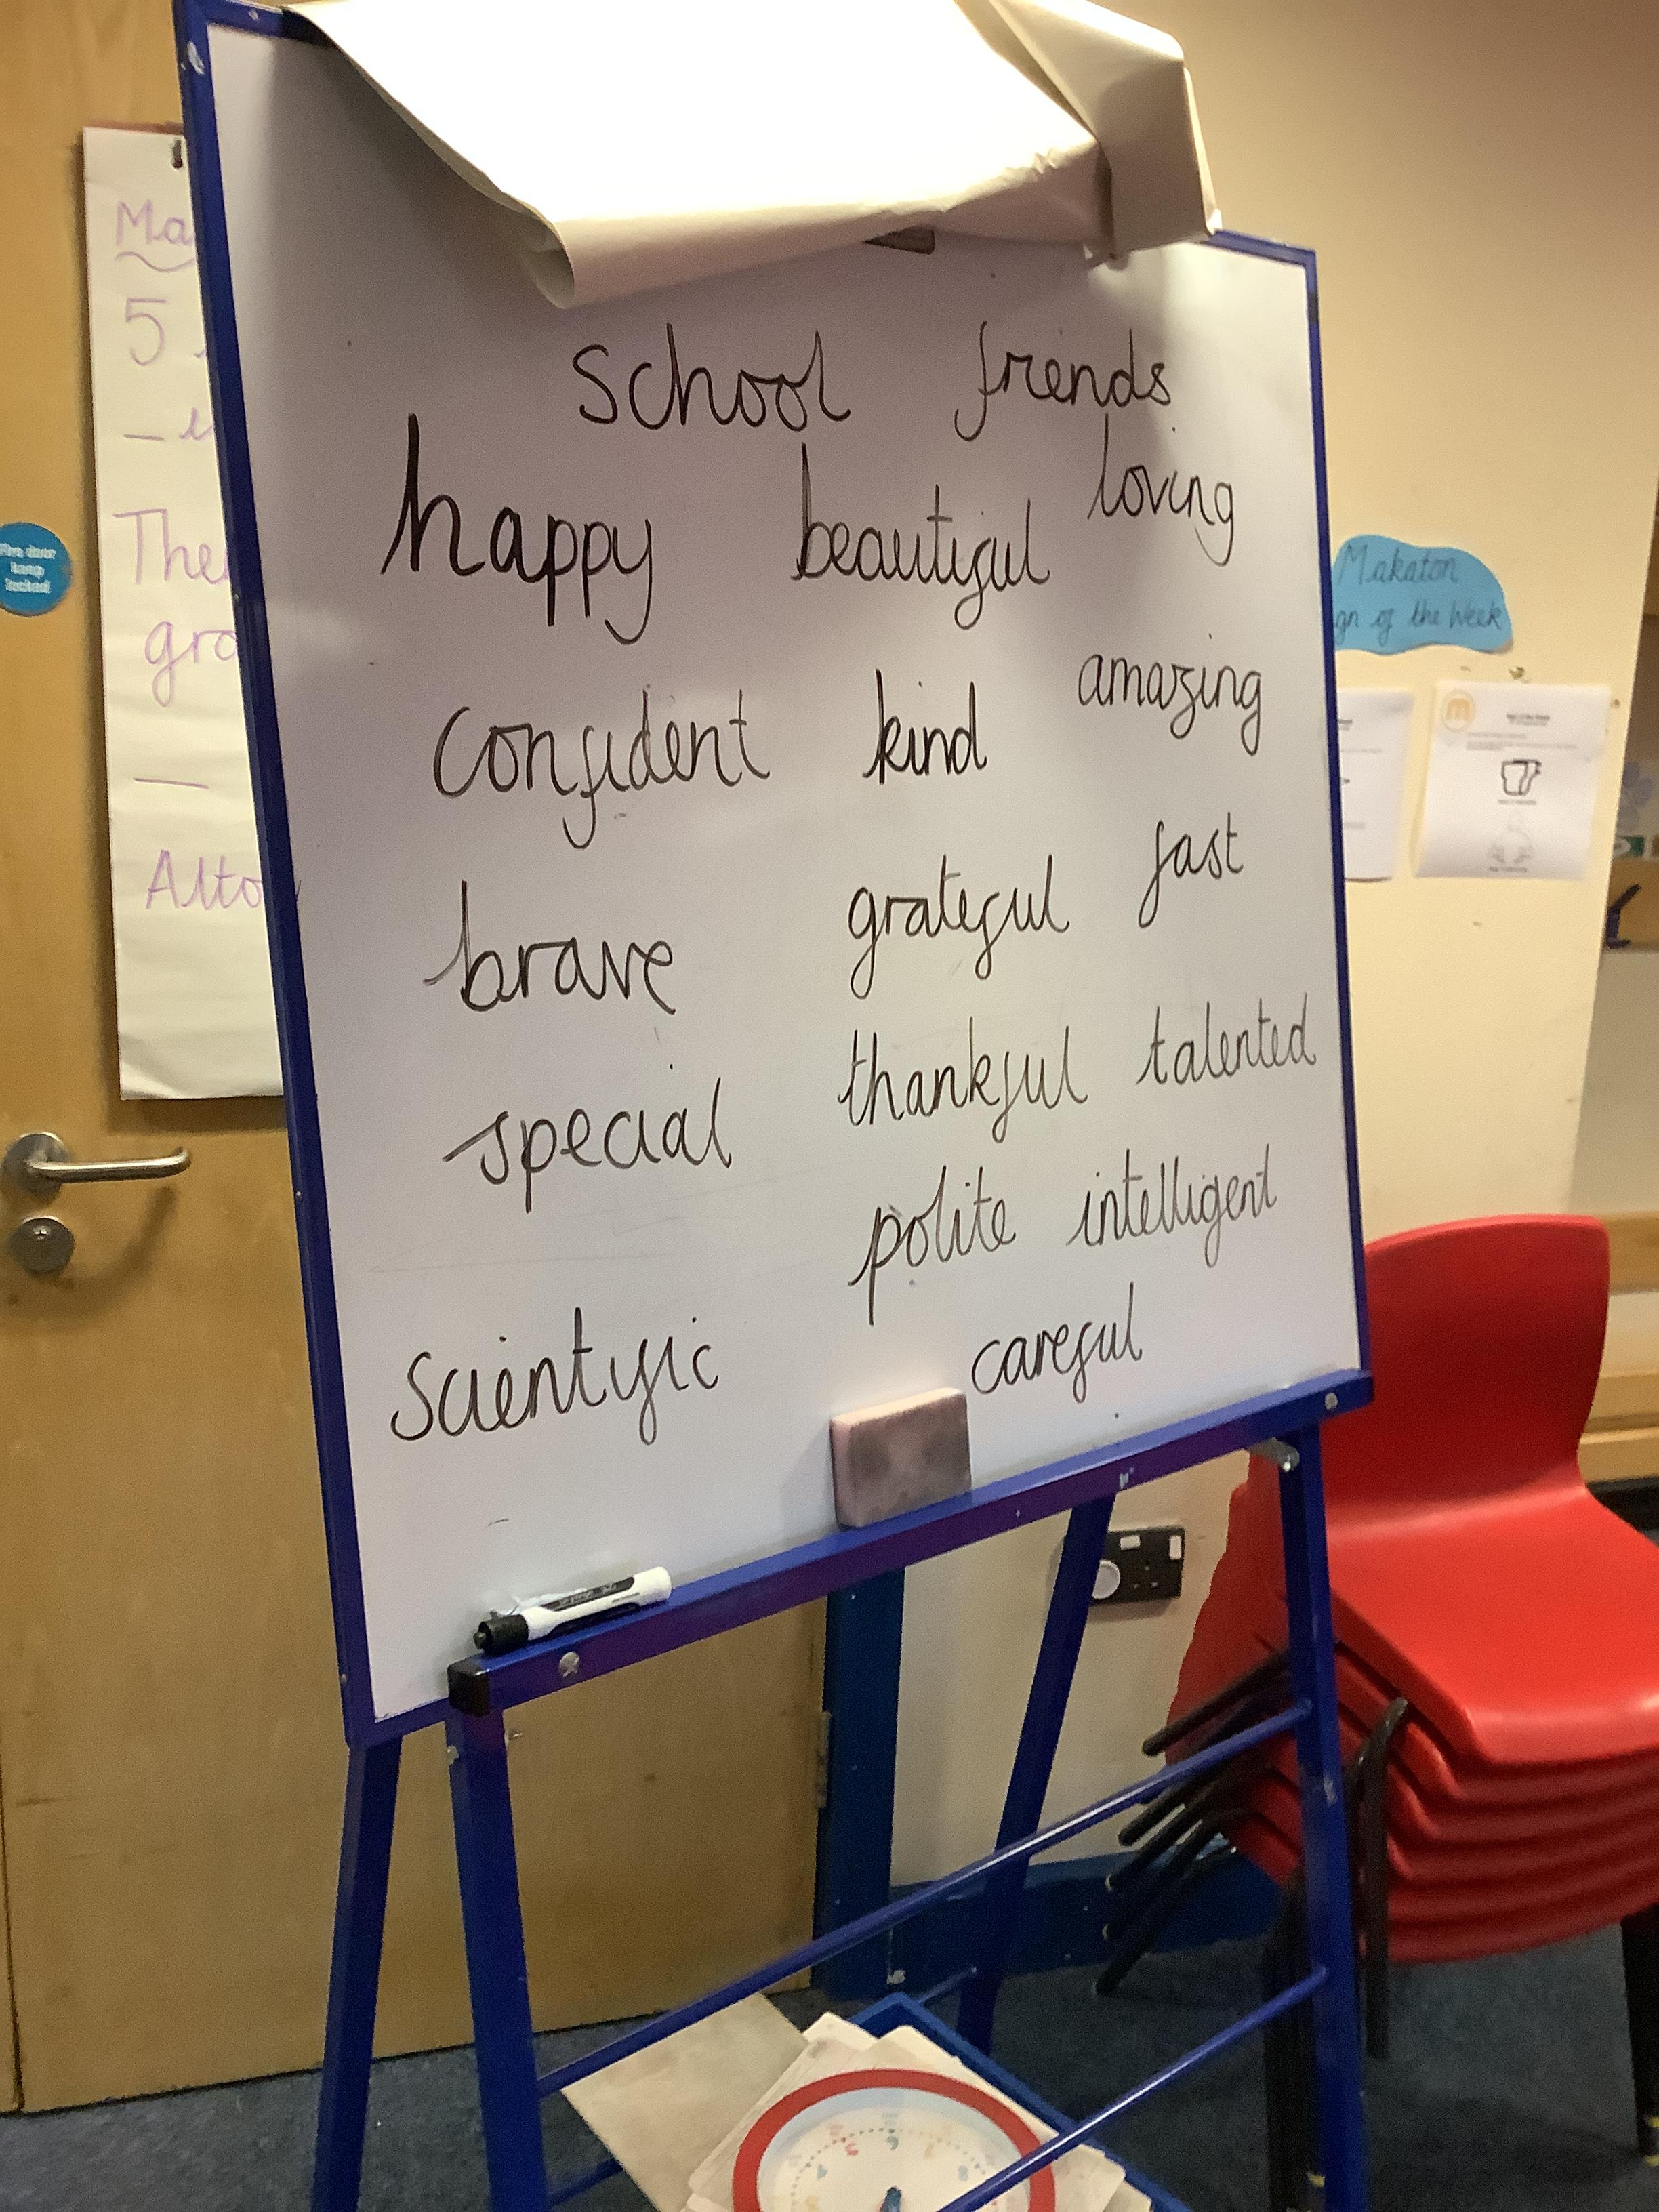 school friends
happy beautiful loving
confident kind amazing
brave grateful fast
special thankful talented
polite intelligent
scientific careful
Ma
5
The
gro
Alto
Fire door
keep
locked
Makaton
gn of the Week